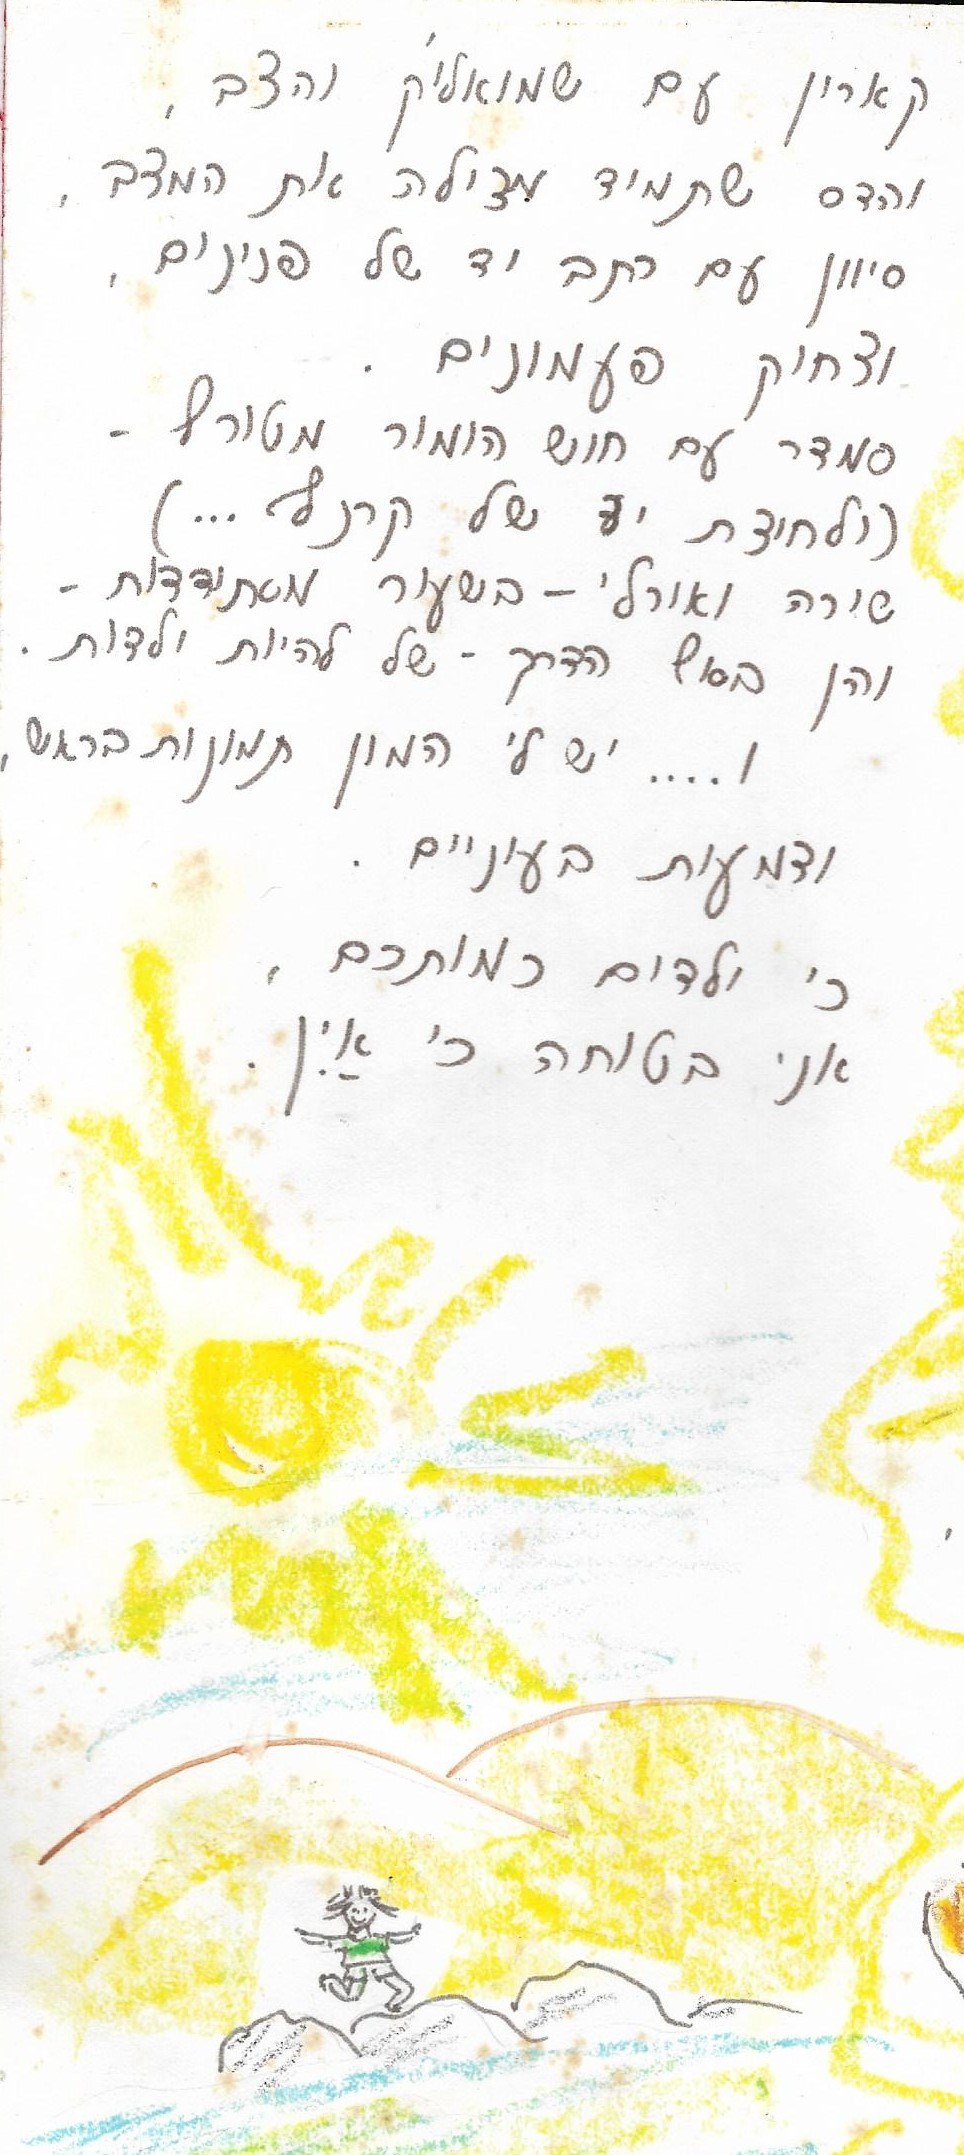 קארין עם שמואליק' והצב,
והדס שתמיד מצילה את המצב,
סיוון עם כתב יד של פנינים,
וצחוק פעמונים.
סמדר עם חוש הומור מטורף -
(ולחיצת יד של קרנף...)
שירה ואורלי - בשעור מתודדות -
והן בסוף הדרך - של להיות ילדות.
ו.... יש לי המון תמונות בראש,
ודמעות בעיניים.
כי ילדים כמותכם,
אני בטוחה כי אַיִן.